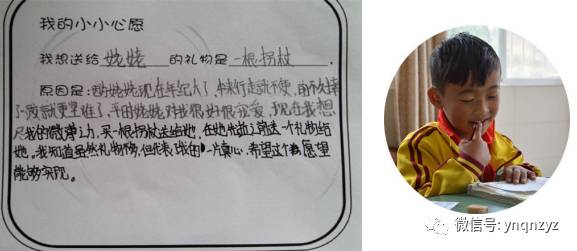 我的小小心愿
我想送给 姥姥 的礼物是 一根拐杖 .
原因是:姥姥现在年纪大了,本来行走就不便,前不久摔
了一跤就更是难了,平时姥姥对我很好很宠爱,现在我想
尽我的微薄之力,买一根拐杖送给她,在她 送一个礼物给
她。我知道虽然礼物 ,但代表我的一片真心,希望这个愿望
能够实现。
微信号: ynqnzyz